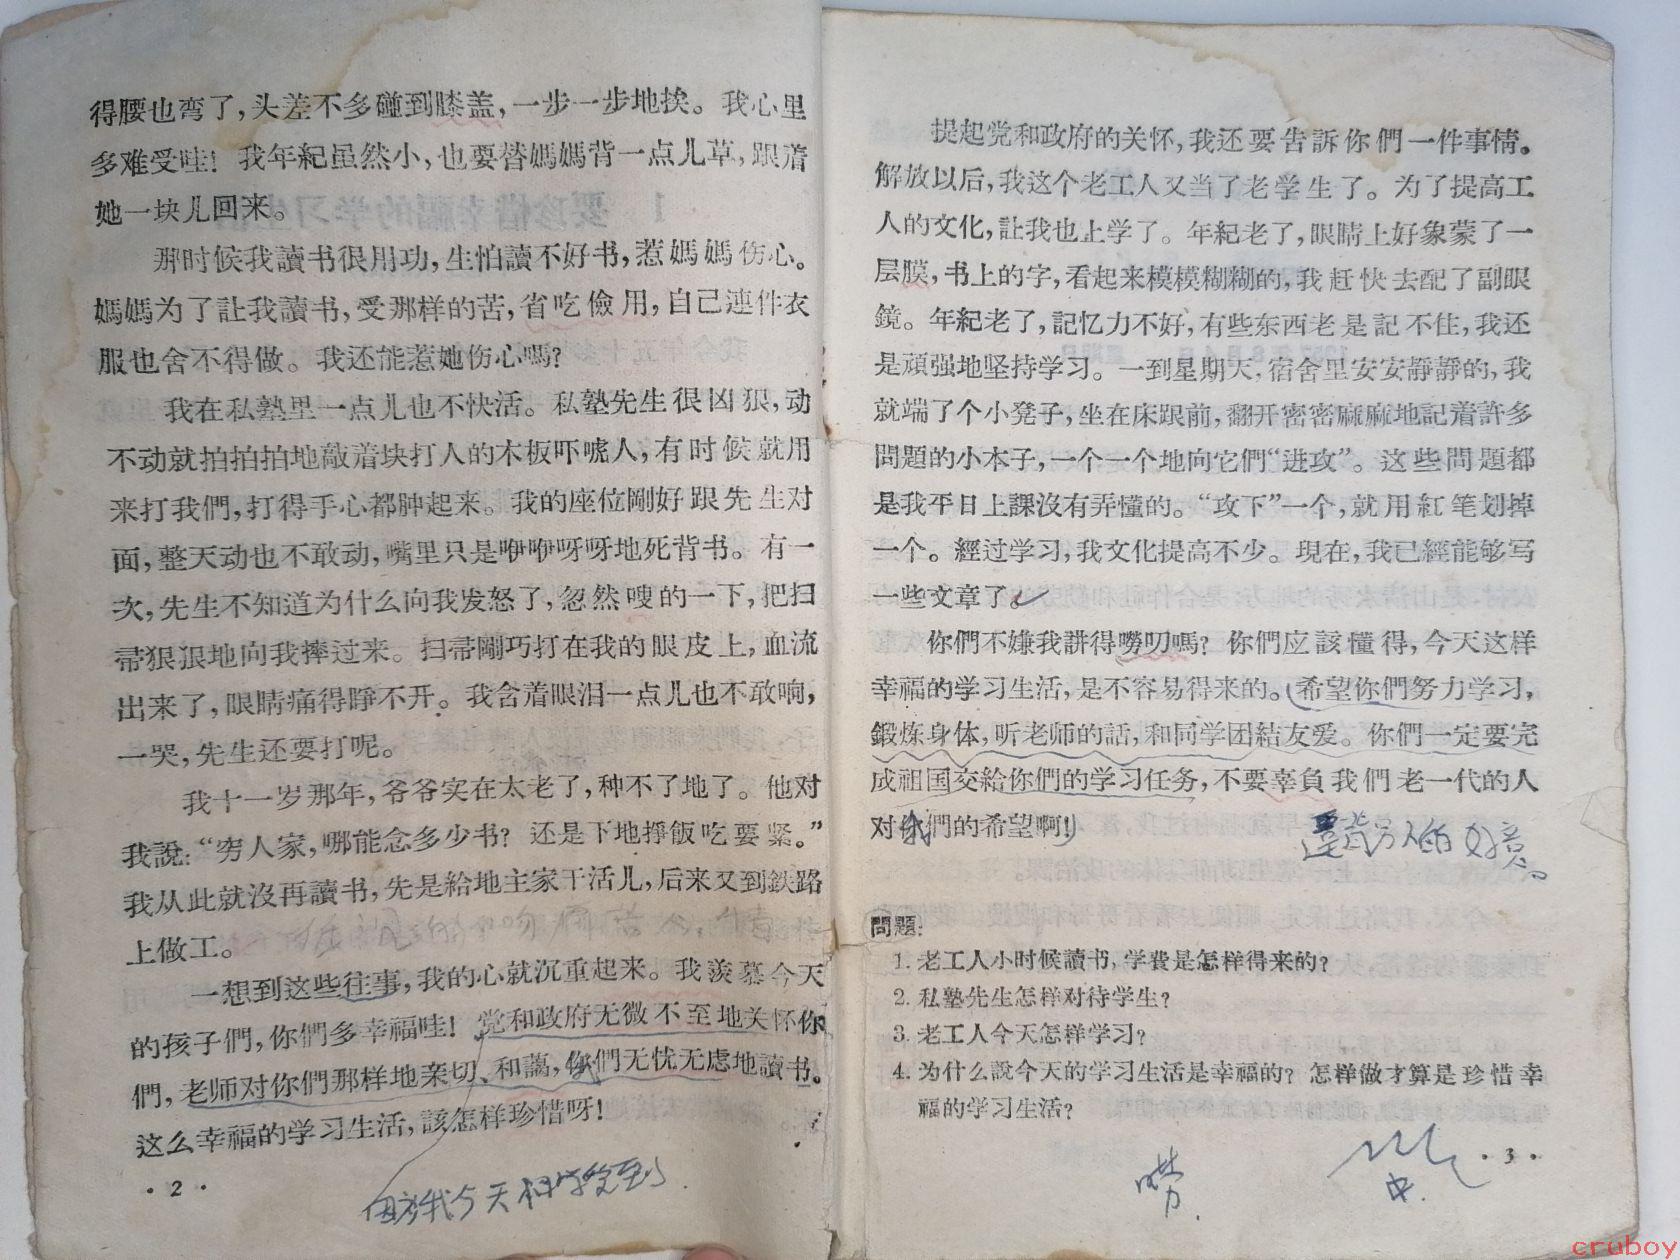 得腰也弯了，头差不多碰到膝盖，一步一步地挨。我心里
多难受哇！我年紀虽然小，也要替媽媽背一点儿草，跟着
她一块儿回来。
那时候我讀书很用功，生怕讀不好书，惹媽媽伤心。
媽媽为了讓我讀书，受那样的苦，省吃儉用，自己連件衣
服也舍不得做。我还能惹她伤心嗎？
我在私塾里一点儿也不快活。私塾先生很凶狠，动
不动就拍拍拍地敲着块打人的木板吓唬人，有时候就用
来打我們，打得手心都肿起来。我的座位剛好跟先生对
面，整天动也不敢动，嘴里只是咿咿呀呀地死背书。有一
次，先生不知道为什么向我发怒了，忽然嗖的一下，把扫
帚狠狠地向我摔过来。扫帚剛巧打在我的眼皮上，血流
出来了，眼睛痛得睁不开。我含着眼泪一点儿也不敢响，
一哭，先生还要打呢。
我十一岁那年，爷爷实在太老了，种不了地了。他对
我說：“穷人家，哪能念多少书？还是下地掙飯吃要紧。”
我从此就沒再讀书，先是給地主家干活儿，后来又到鉄路
上做工。
一想到这些往事，我的心就沉重起来。我羡慕今天
的孩子們，你們多幸福哇！党和政府无微不至地关怀你
們，老师对你們那样地亲切、和藹，你們无忧无虑地讀书。
这么幸福的学习生活，該怎样珍惜呀！
·2·
提起党和政府的关怀，我还要告訴你們一件事情。
解放以后，我这个老工人又当了老学生了。为了提高工
人的文化，讓我也上学了。年紀老了，眼睛上好象蒙了一
层膜，书上的字，看起来模模糊糊的，我赶快去配了副眼
鏡。年紀老了，記忆力不好，有些东西老是記不住，我还
是頑强地坚持学习。一到星期天，宿舍里安安靜靜的，我
就端了个小凳子，坐在床跟前，翻开密密麻麻地記着許多
問題的小本子，一个一个地向它們“进攻”。这些問題都
是我平日上課沒有弄懂的。“攻下”一个，就用紅笔划掉
一个。經过学习，我文化提高不少。現在，我已經能够写
一些文章了。
你們不嫌我講得嘮叨嗎？你們应該懂得，今天这样
幸福的学习生活，是不容易得来的。希望你們努力学习，
鍛炼身体，听老师的話，和同学团結友爱。你們一定要完
成祖国交給你們的学习任务，不要辜負我們老一代的人
对你們的希望啊！
違背別人的好意。
問題：
1. 老工人小时候讀书，学費是怎样得来的？
2. 私塾先生怎样对待学生？
3. 老工人今天怎样学习？
4. 为什么說今天的学习生活是幸福的？怎样做才算是珍惜幸
福的学习生活？
嘮
·3·
cruboy